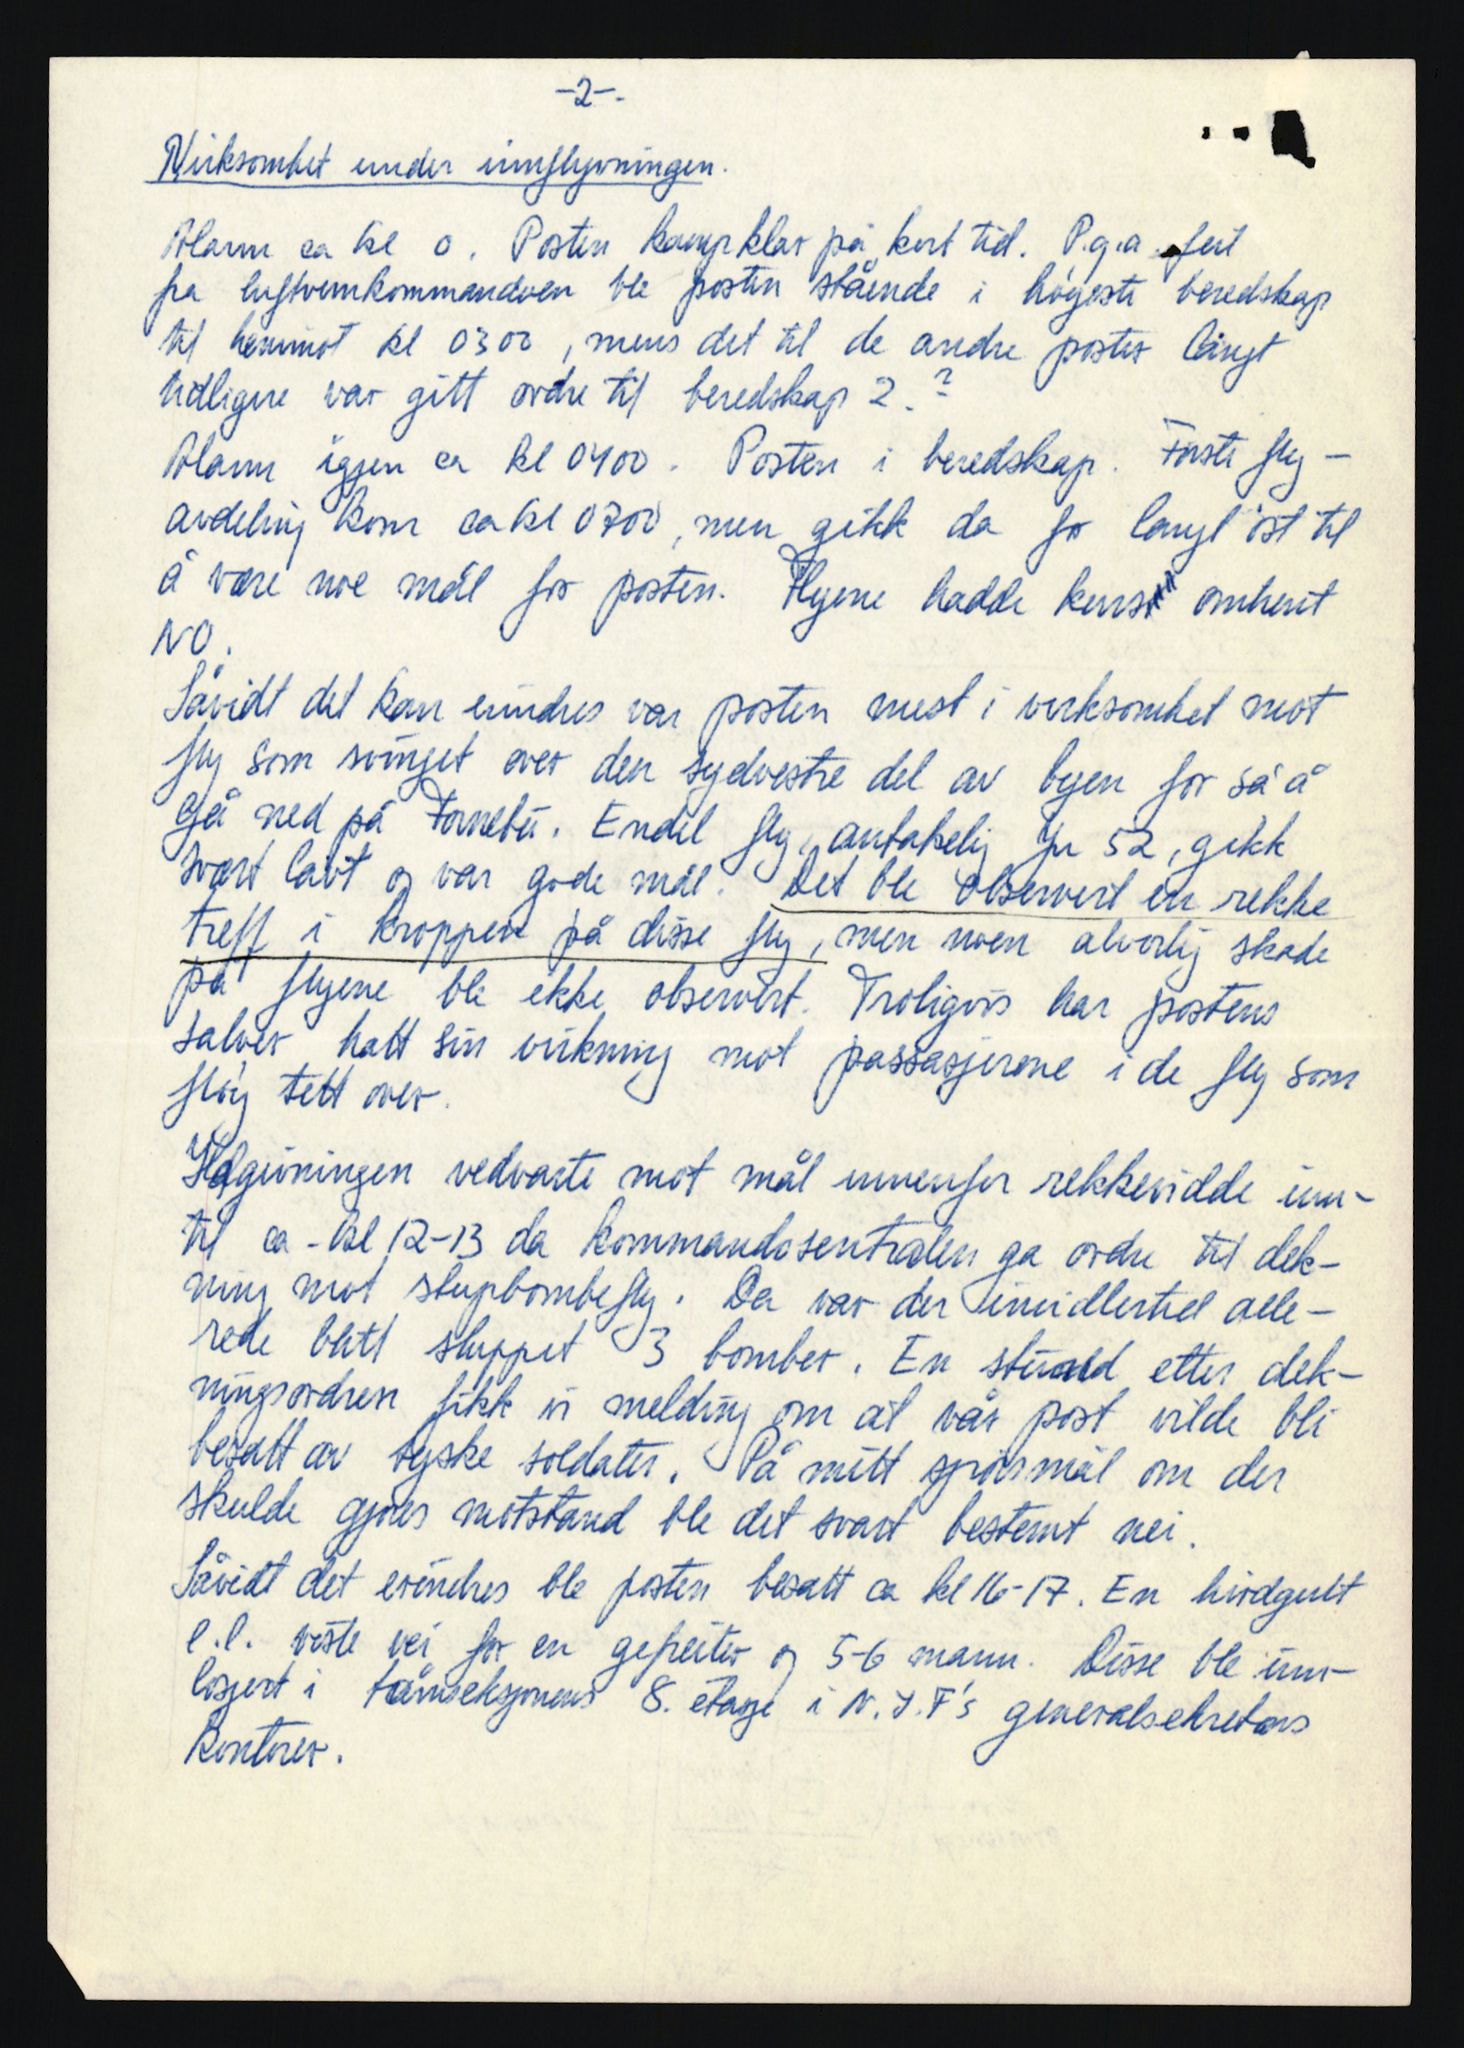 -2-.
Virksomhet under innflyvningen.
Alarm ca kl 0. Posten kampklar på kort tid. P.g.a. feil
fra luftvernkommandoen ble posten stående i högeste beredskap
til henimot kl 0300, mens det til de andre poster långt
tidligere var gitt ordre til beredskap 2.?
Alarm igjen ca kl 0400. Posten i beredskap. Förste fly-
avdeling kom ca kl 0700, men gikk da for langt öst til
å være noe mål for posten. Flyene hadde kurs omkrent
NO.
Såvidt det kan erindres var posten mest i virksomhet mot
fly som svinget over den sydvestre del av byen for så å
gå ned på Fornebu. Endel fly, antakelig Ju 52, gikk
svært lavt og var gode mål. Det ble observert en rekke
treff i kroppen på disse fly, men noen alvorlig skade
på flyene ble ikke observert. Troligvis har postens
salver hatt sin virkning mot passasjerene i de fly som
flöy tett over.
Ildgivningen vedvarte mot mål innenfor rekkevidde inn-
til ca kl 12-13 da kommandosentralen ga ordre til dek-
ning mot stupbombefly. Da var der imidlertid alle-
rede blitt sluppet 3 bomber. En stund etter dek-
ningsordren fikk vi melding om at vår post vilde bli
besatt av tyske soldater. På mitt spörsmål om der
skulde gjöres motstand ble det svart bestemt nei.
Såvidt det erindres ble posten besatt ca kl 16-17. En hirdgutt
e.l. viste vei for en gefreiter og 5-6 mann. Disse ble inn-
losjert i tårnseksjonens 8. etasje i N.I.F's generalsekretærs
kontorer.